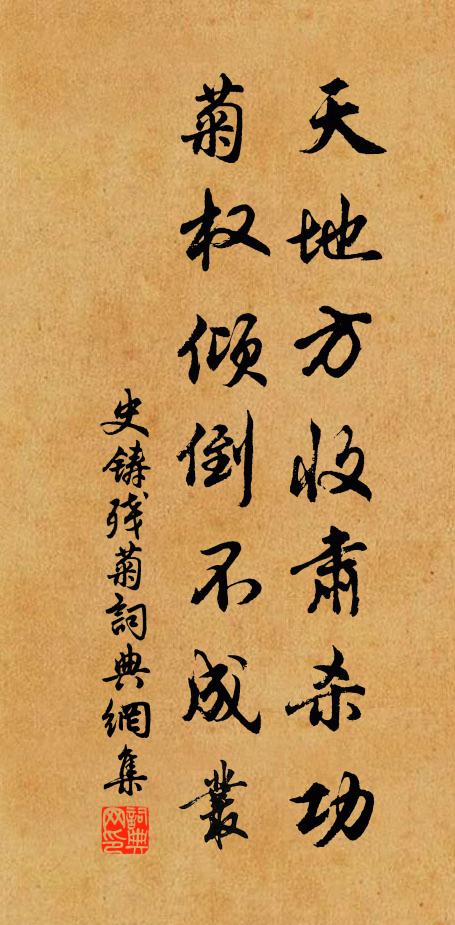 天地方收肃杀功
菊权倾倒不成叢
史鑄残菊詞典網集
詞典网印